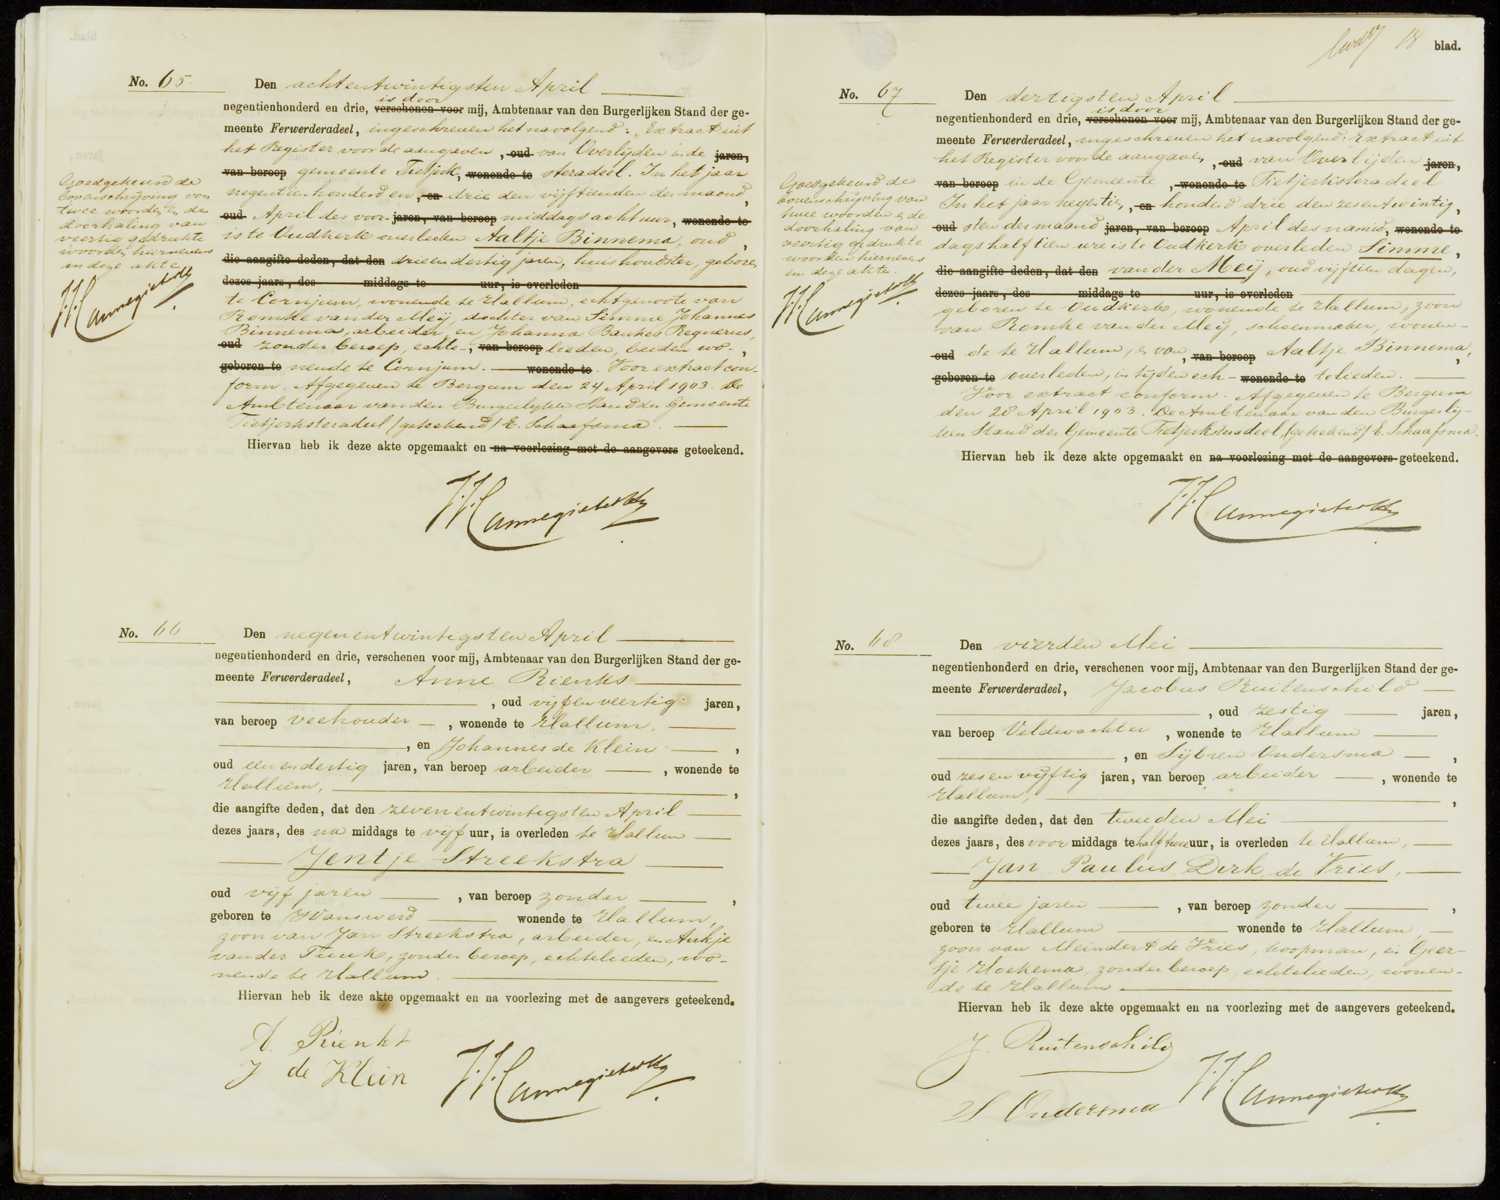 No. 65 Den achtentwintigsten April
is door
negentienhonderd en drie, verschenen voor mij, Ambtenaar van den Burgerlijken Stand der ge-
meente Ferwerderadeel, ingeschreven het navolgend: Extract uit
het Register voor de aangaven, oud van Overlijden in de jaren,
van beroep gemeente Tietjerk, wonende te steradeel. In het jaar
negentienhonderd en, en drie den vijftienden der maand,
oud April des voor jaren, van beroep middags acht uur, wonende te
is te Oudkerk overleden Aaltje Binnema, oud,
die aangifte deden, dat den drieendertig jaren, huishoudster, geboren
dezes jaars, des middags te uur, is overleden
te Cornjum, wonende te Hallum, echtgenoote van
Romke van der Meij, dochter van Simme Johannes
Binnema, arbeider, en Johanna Baukes Regnerus,
oud zonder beroep, echte-, van beroep lieden, beiden wo-,
geboren te nende te Cornjum. wonende te Voor extract con-
form. Afgegeven te Bergum den 24 April 1903. De
Ambtenaar van den Burgerlijken Stand der Gemeente
Tietjerksteradeel (geteekend) E. Schaafsma.
Hiervan heb ik deze akte opgemaakt en na voorlezing met de aangevers geteekend.
Goedgekeurd de
overschrijving van
twee woorden, en de
doorhaling van
veertig gedrukte
woorden hiernevens
in deze akte.
J.J. Cannegieter
J.J. Cannegieter
No. 66 Den negenentwintigsten April
negentienhonderd en drie, verschenen voor mij, Ambtenaar van den Burgerlijken Stand der ge-
meente Ferwerderadeel, Anne Rienks
, oud vijfenveertig jaren,
van beroep veehouder, wonende te Hallum.
, en Johannes de Klein,
oud eenendertig jaren, van beroep arbeider, wonende te
Hallum,
die aangifte deden, dat den zevenentwintigsten April
dezes jaars, des na middags te vijf uur, is overleden te Hallum
Jentje Streekstra
oud vijf jaren, van beroep zonder,
geboren te Wanswerd wonende te Hallum,
zoon van Jan Streekstra, arbeider, en Aukje
van der Tuuk, zonder beroep, echtelieden, wo-
nende te Hallum.
Hiervan heb ik deze akte opgemaakt en na voorlezing met de aangevers geteekend.
A. Rienks
J de Klein
J.J. Cannegieter
18 blad.
No. 67 Den dertigsten April
is door
negentienhonderd en drie, verschenen voor mij, Ambtenaar van den Burgerlijken Stand der ge-
meente Ferwerderadeel, ingeschreven het navolgend: Extract uit
het Register voor de aangave, oud van Overlijden jaren,
van beroep in de Gemeente, wonende te Tietjerksteradeel
In het jaar negentien, en honderd drie den zesentwintig,
oud sten des maand jaren, van beroep April des namid, wonende te
dags half tien ure is te Oudkerk overleden Simme,
die aangifte deden, dat den van der Meij, oud vijftien dagen,
dezes jaars, des middags te uur, is overleden
geboren te Oudkerk, wonende te Hallum, zoon
van Romke van der Meij, schoenmaker, wonen-
oud de te Hallum, en van, van beroep Aaltje Binnema,
geboren te overleden, in tijden ech- wonende te telieden.
Voor extract conform. Afgegeven te Bergum
den 28 April 1903. De Ambtenaar van den Burgerlij-
ken Stand der Gemeente Tietjerksteradeel, (geteekend) E. Schaafsma.
Hiervan heb ik deze akte opgemaakt en na voorlezing met de aangevers geteekend.
Goedgekeurd de
overschrijving van
twee woorden en de
doorhaling van
veertig gedrukte
woorden hiernevens
in deze akte.
J.J. Cannegieter
J.J. Cannegieter
No. 68 Den vierden Mei
negentienhonderd en drie, verschenen voor mij, Ambtenaar van den Burgerlijken Stand der ge-
meente Ferwerderadeel, Jacobus Ruitenschild
, oud zestig jaren,
van beroep Veldwachter, wonende te Hallum
, en Sijbren Oudersma,
oud zesenvijftig jaren, van beroep arbeider, wonende te
Hallum,
die aangifte deden, dat den tweeden Mei
dezes jaars, des voor middags te half twee uur, is overleden te Hallum,
Jan Paulus Dirk de Vries,
oud twee jaren, van beroep zonder,
geboren te Hallum wonende te Hallum,
zoon van Meindert de Vries, koopman, en Geer-
tje Hoekema, zonder beroep, echtelieden, wonen-
de te Hallum.
Hiervan heb ik deze akte opgemaakt en na voorlezing met de aangevers geteekend.
J. Ruitenschild
S Oudersma
J.J. Cannegieter